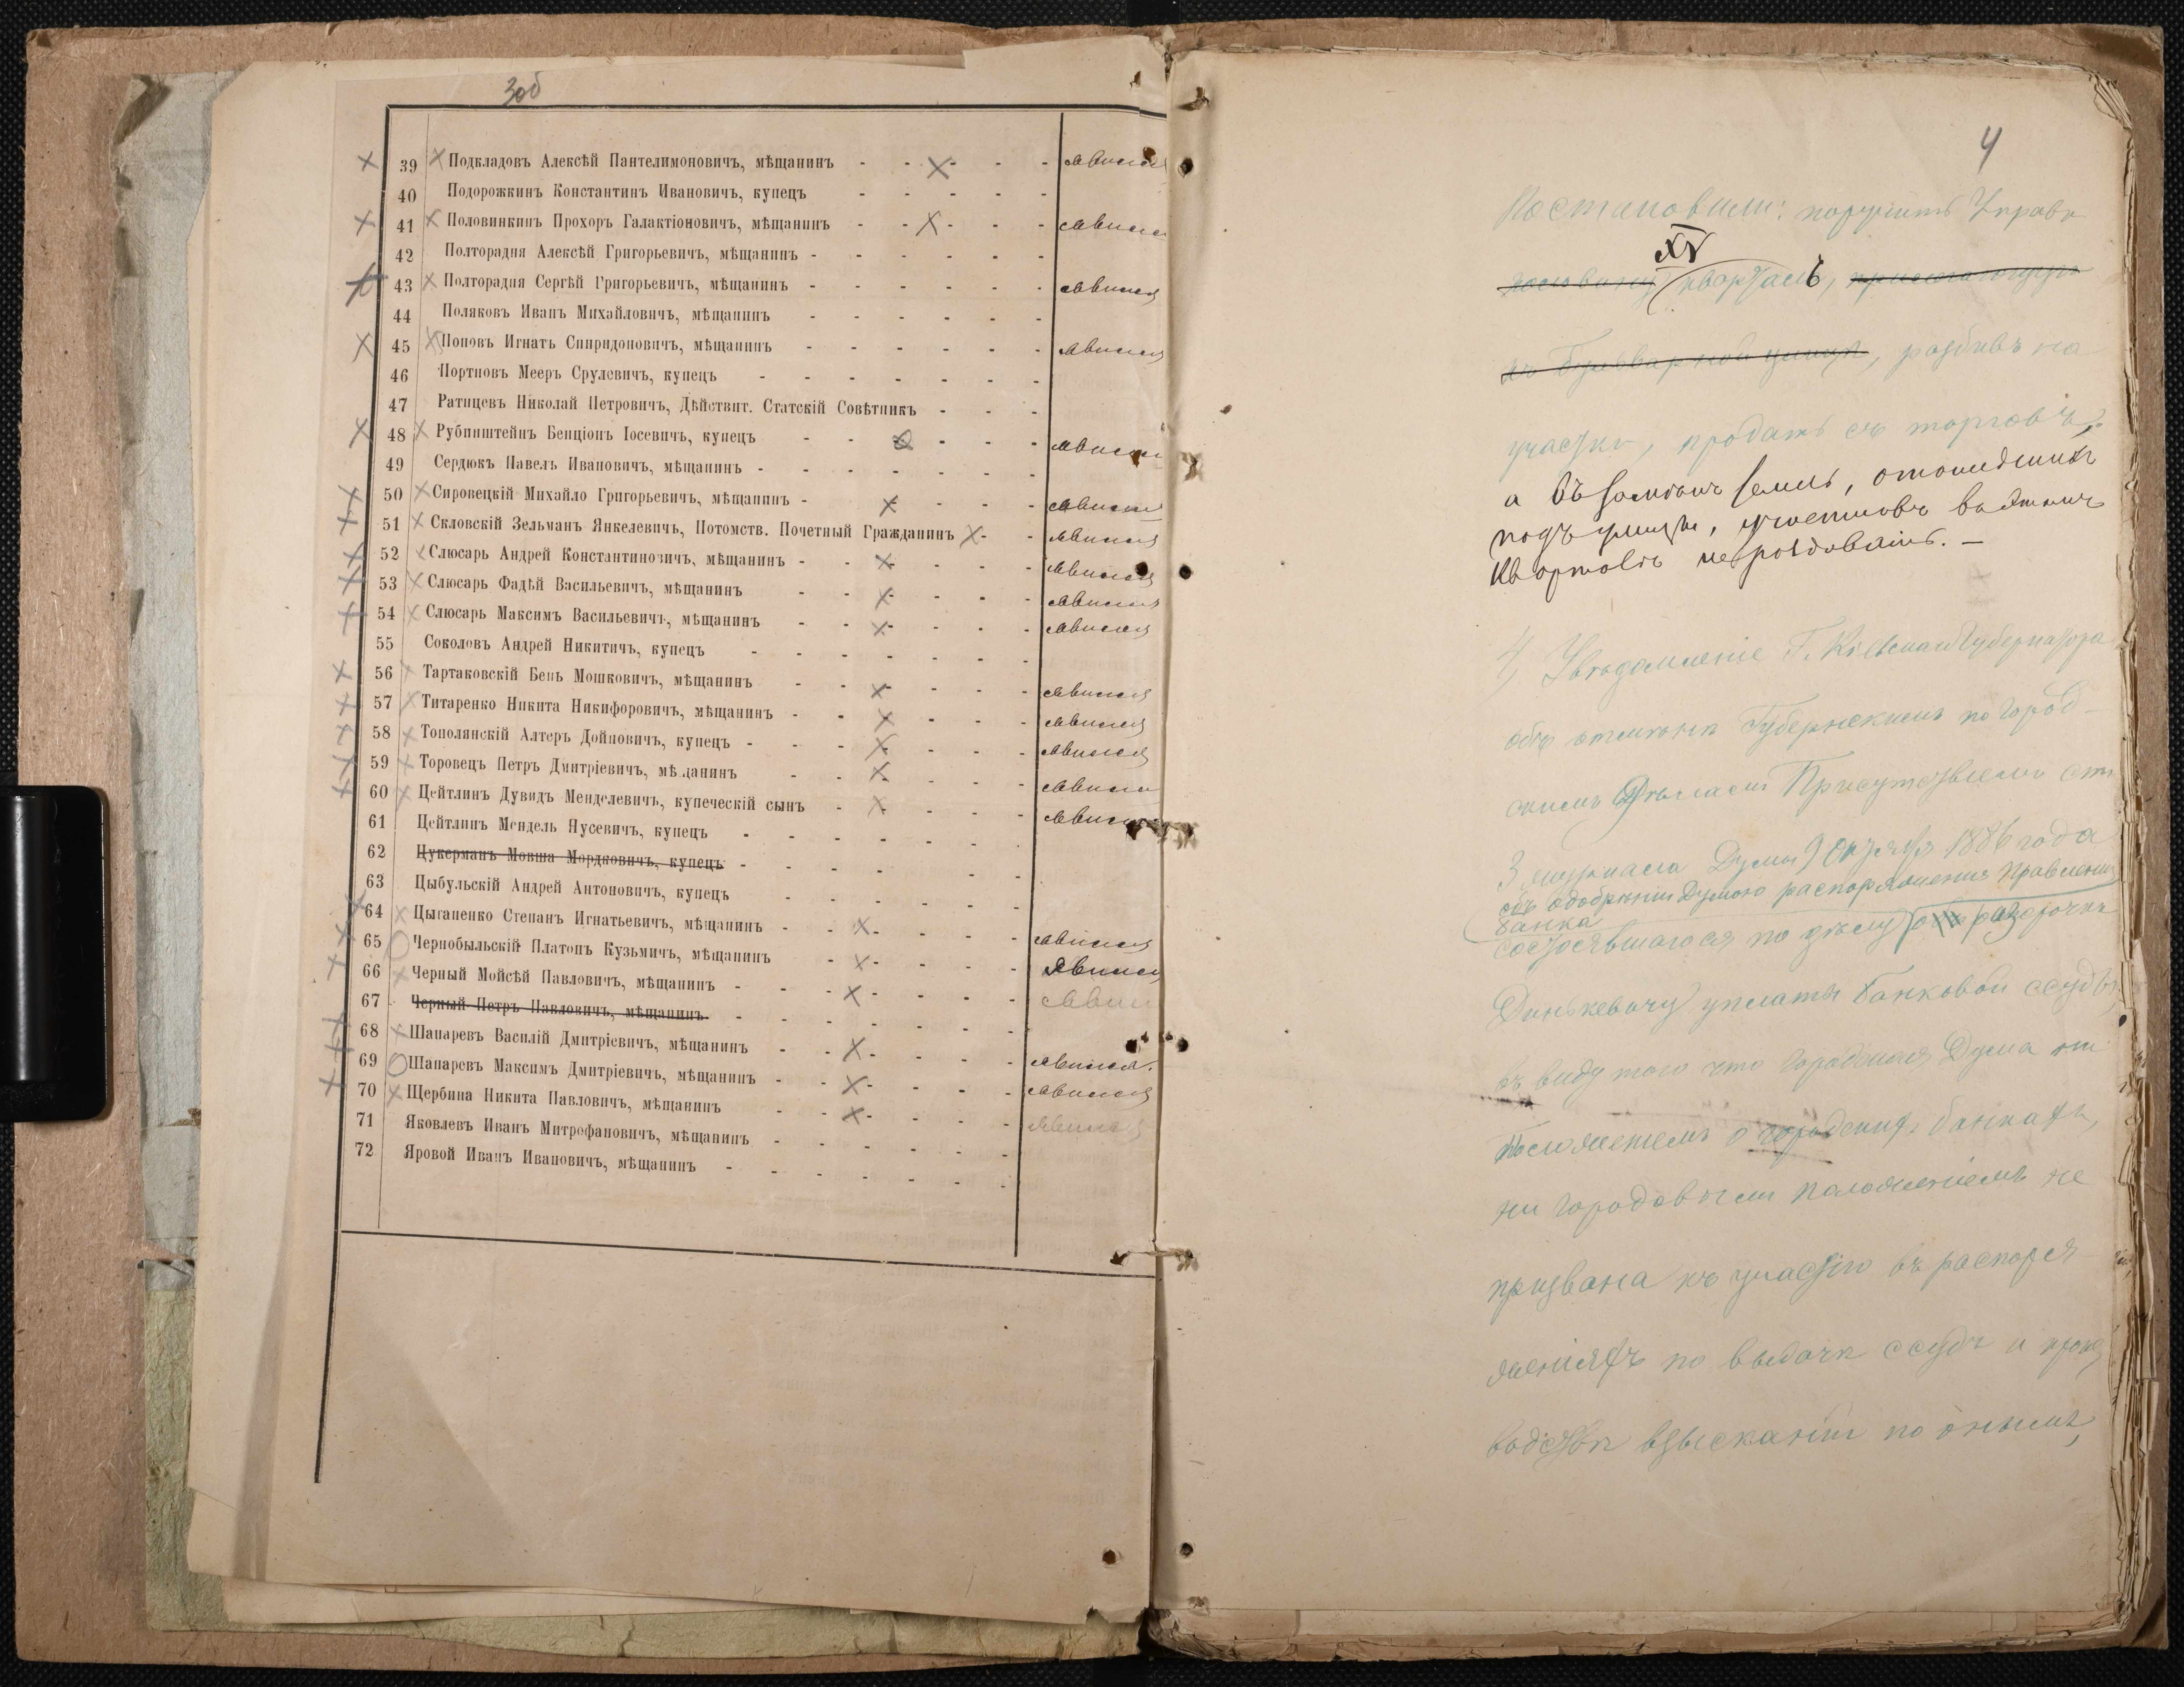 3об
39 Подкладовъ Алексѣй Пантелимоновичъ, мѣщанинъ - - - - - явился
40 Подорожкинъ Константинъ Ивановичъ, купецъ - - - - -
41 Половинкинъ Прохоръ Галактіоновичъ, мѣщанинъ - - - - - явился
42 Полторадня Алексѣй Григорьевичъ, мѣщанинъ - - - - - -
43 Полторадня Сергѣй Григорьевичъ, мѣщанинъ - - - - - - явился
44 Поляковъ Иванъ Михайловичъ, мѣщанинъ - - - - - -
45 Поповъ Игнатъ Спиридоновичъ, мѣщанинъ - - - - - - явился
46 Портновъ Мееръ Срулевичъ, купецъ - - - - - - -
47 Ратищевъ Николай Петровичъ, Дѣйствит. Статскій Совѣтникъ - - -
48 Рубинштейнъ Бенціонъ Іосевичъ, купецъ - - - - - - явился
49 Сердюкъ Павелъ Ивановичъ, мѣщанинъ - - - - - - -
50 Сировецкій Михайло Григорьевичъ, мѣщанинъ - - - - - явился
51 Скловскій Зельманъ Янкелевичъ, Потомств. Почетный Гражданинъ - - явился
52 Слюсарь Андрей Константиновичъ, мѣщанинъ - - - - - - явился
53 Слюсарь Фадѣй Васильевичъ, мѣщанинъ - - - - - - явился
54 Слюсарь Максимъ Васильевичъ, мѣщанинъ - - - - - - явился
55 Соколовъ Андрей Никитичъ, купецъ - - - - - - -
56 Тартаковскій Бень Мошковичъ, мѣщанинъ - - - - - - явился
57 Титаренко Никита Никифоровичъ, мѣщанинъ - - - - - - явился
58 Тополянскій Алтеръ Дойновичъ, купецъ - - - - - - - явился
59 Торовецъ Петръ Дмитріевичъ, мѣщанинъ - - - - - - явился
60 Цейтлинъ Дувидъ Менделевичъ, купеческій сынъ - - - - - явился
61 Цейтлинъ Мендель Нусевичъ, купецъ - - - - - - -
62 Цукерманъ Мовша Мордковичъ, купецъ - - - - - - -
63 Цыбульскій Андрей Антоновичъ, купецъ - - - - - - -
64 Цыганенко Степанъ Игнатьевичъ, мѣщанинъ - - - - - - явился
65 Чернобыльскій Платонъ Кузьмичъ, мѣщанинъ - - - - - явился
66 Черный Мойсѣй Павловичъ, мѣщанинъ - - - - - - - явился
67 Черный Петръ Павловичъ, мѣщанинъ - - - - - - -
68 Шапаревъ Василій Дмитріевичъ, мѣщанинъ - - - - - - явился.
69 Шапаревъ Максимъ Дмитріевичъ, мѣщанинъ - - - - - - явился
70 Щербина Никита Павловичъ, мѣщанинъ - - - - - - явился
71 Яковлевъ Иванъ Митрофановичъ, мѣщанинъ - - - - - -
72 Яровой Иванъ Ивановичъ, мѣщанинъ - - - - - - -
4
Постановили: поручить Управѣ
XV
кварталъ,
разбивъ на
участки, продать съ торговъ,
а въ замѣнъ земли, отошедшихъ
подъ улицы, участковъ въ этомъ
кварталѣ не раздавать. —
4, Увѣдомленіе Г. Кіевскаго Губернатора
объ отмѣнѣ Губернскимъ по город-
скимъ дѣламъ Присутствіемъ ст.
3 журнала Думы 9 Октября 1886 года
объ одобреніи Думою распоряженія Правленія
банка
состоявшагося по дѣлу разсрочкѣ
Динькевичу уплаты банковой ссуды,
въ виду того что Городская Дума ни
Положеніемъ о городских банкахъ,
ни городовымъ положеніемъ не
призвана къ участію въ распоря-
женіяхъ по выдачѣ ссудъ и произ
водствѣ взысканій по онымъ,